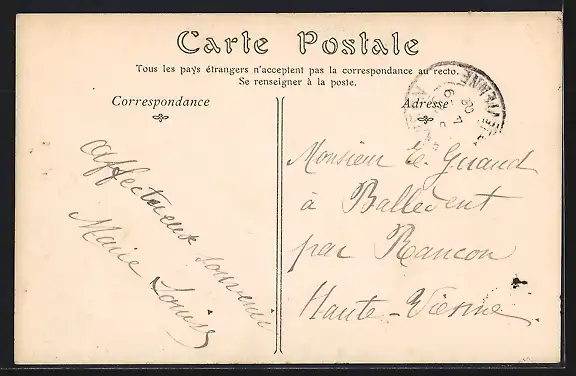 Carte Postale
Tous les pays étrangers n'acceptent pas la correspondance au recto.
Se renseigner à la poste.
Correspondance
Adresse
Affectueux souvenir
Marie Louise
Monsieur le Guand
à Balledent
par Rancon
Haute-Vienne
VIENNE